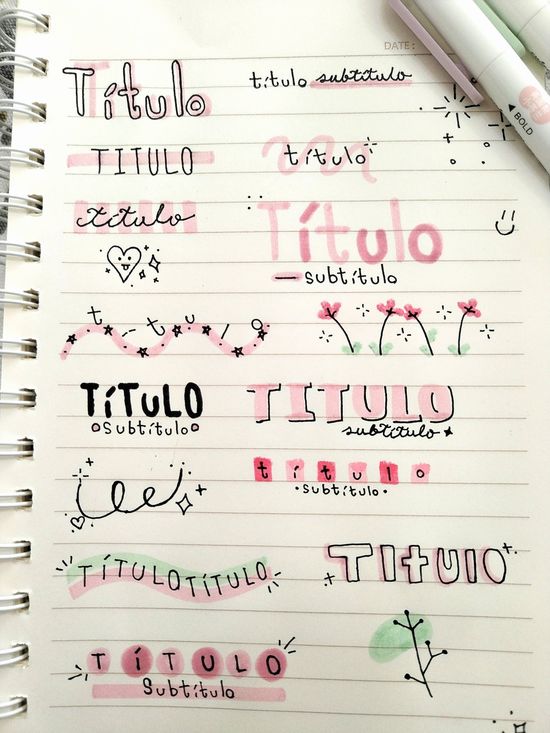 DATE:
Título
título subtítulo
BOLD
TITULO
título
título
Título
Subtítulo
título
TíTuLO
Subtítulo
TITULO
subtítulo
título
subtítulo
TÍTULOTÍTULO
TItulo
TÍTULO
Subtítulo